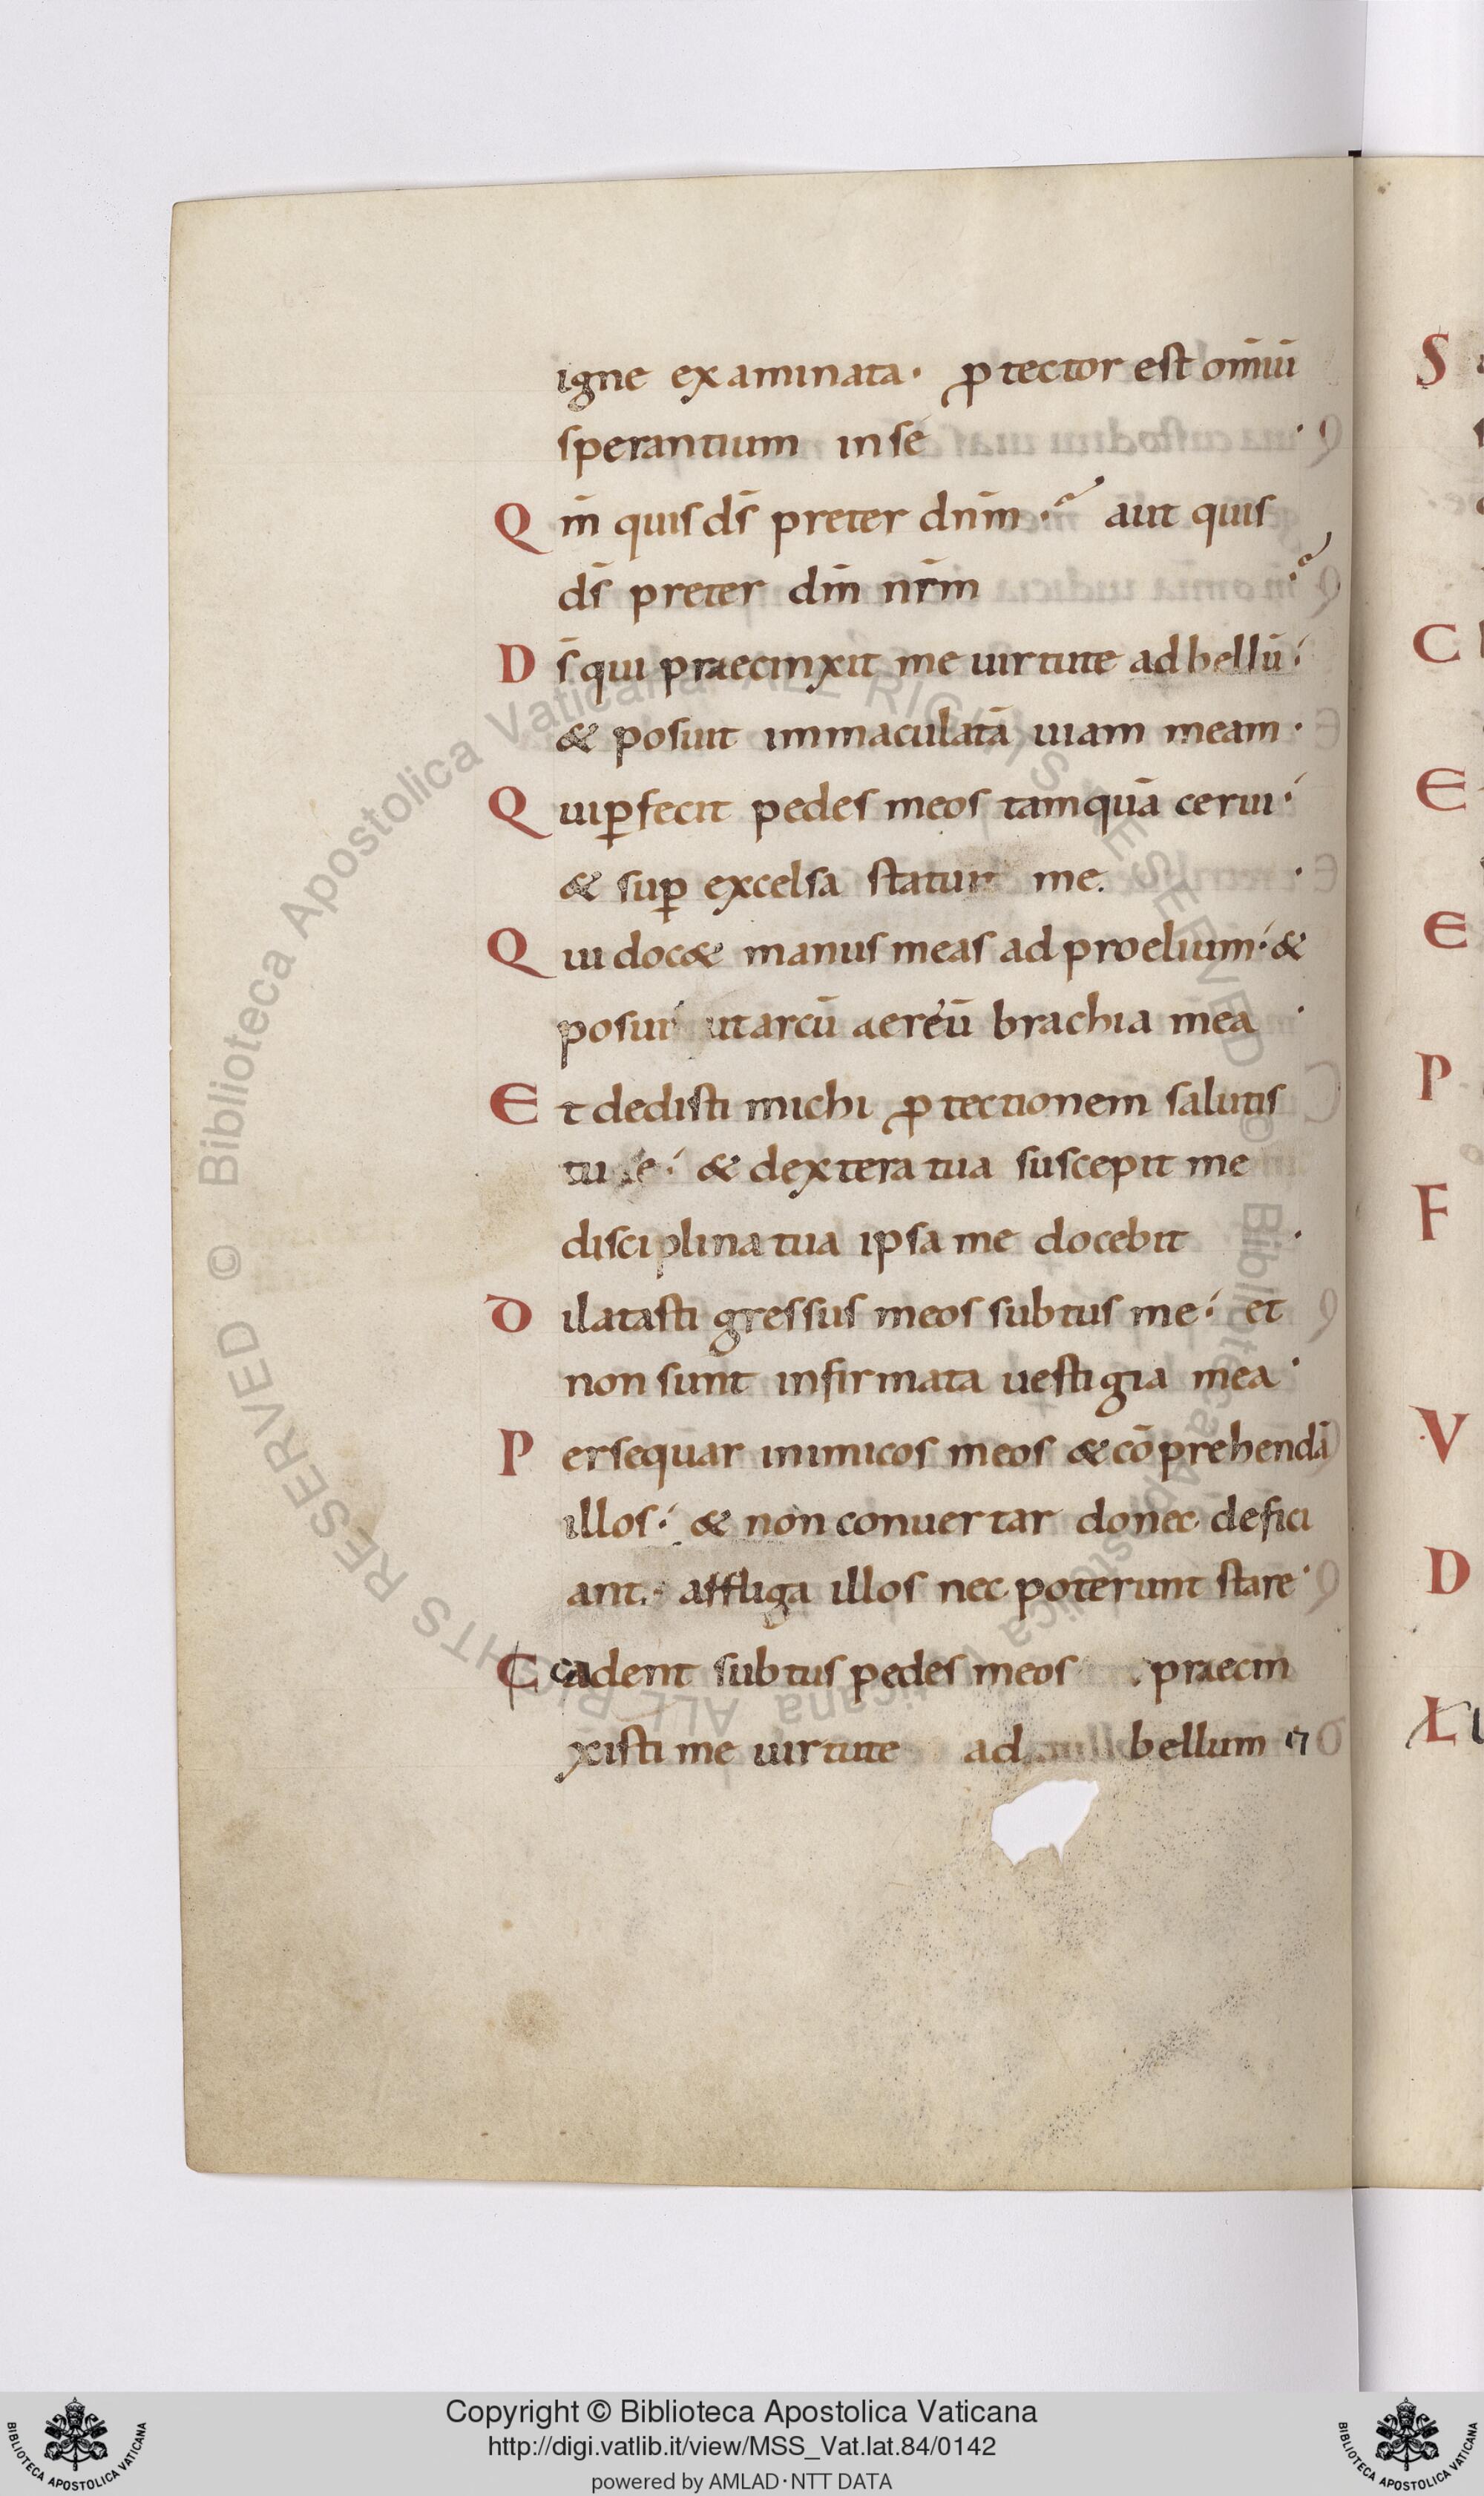 igne examinata· ꝓtector est om̄iū
sperantium in se ·
Qm̄ quis ds̄ preter dn̄m·? aut quis
ds̄ preter dm̄ nr̄m ·?
Ds̄ qui praecinxit me uirtute ad bellū·
& posuit immaculatā uiam meam·
Qui ꝑfecit pedes meos tamquā cerui·
& suꝑ excelsa statuit me. ·
Qui doc& manus meas ad proelium· &
posui ut arcū aereū brachia mea ·
Et dedisti michi ꝓtectionem salutis
tu e· & dextera tua suscepit me
disciplina tua ipsa me docebit ·
Dilatasti gressus meos subtus me· et
non sunt infirmata uestigia mea·
Persequar inimicos meos & cōprehendā
illos· & non conuertar donec defici
ant· affliga illos nec poterunt stare·
Cadent subtus pedes meos praecin
xisti me uirtute ad bellum
S
C
E
E
P
F
V
D
L
© Biblioteca Apostolica Vaticana ALL RIGHTS RESERVED © Biblioteca Apostolica Vaticana ALL RIGHTS RESERVED
BIBLIOTECA APOSTOLICA VATICANA
Copyright © Biblioteca Apostolica Vaticana
http://digi.vatlib.it/view/MSS_Vat.lat.84/0142
powered by AMLAD·NTT DATA
BIBLIOTECA APOSTOLICA VATICANA